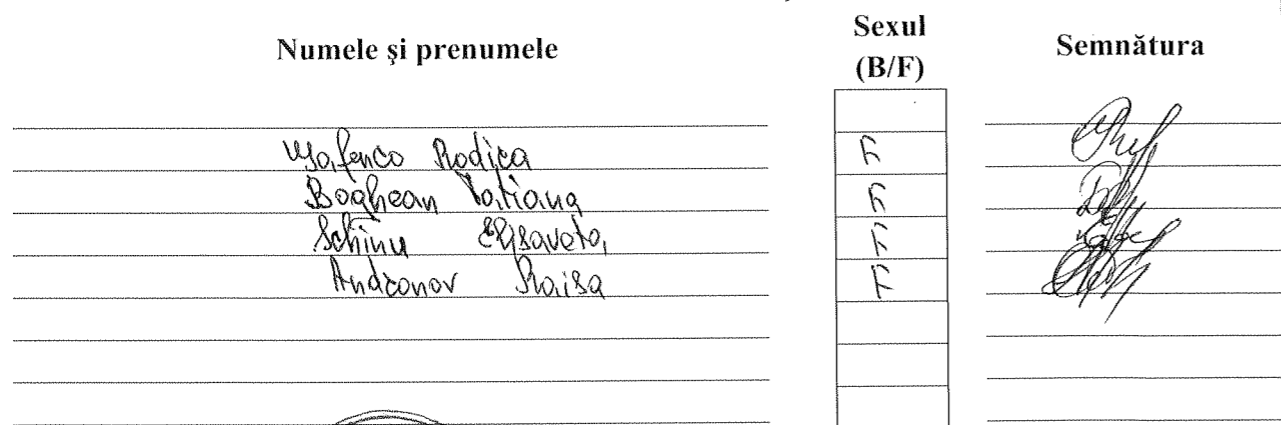 Numele şi prenumele Sexul (B/F) Semnătura
Rodica F
Boghean Tatiana F
Schinu Elisaveta F
Andronov Raisa F